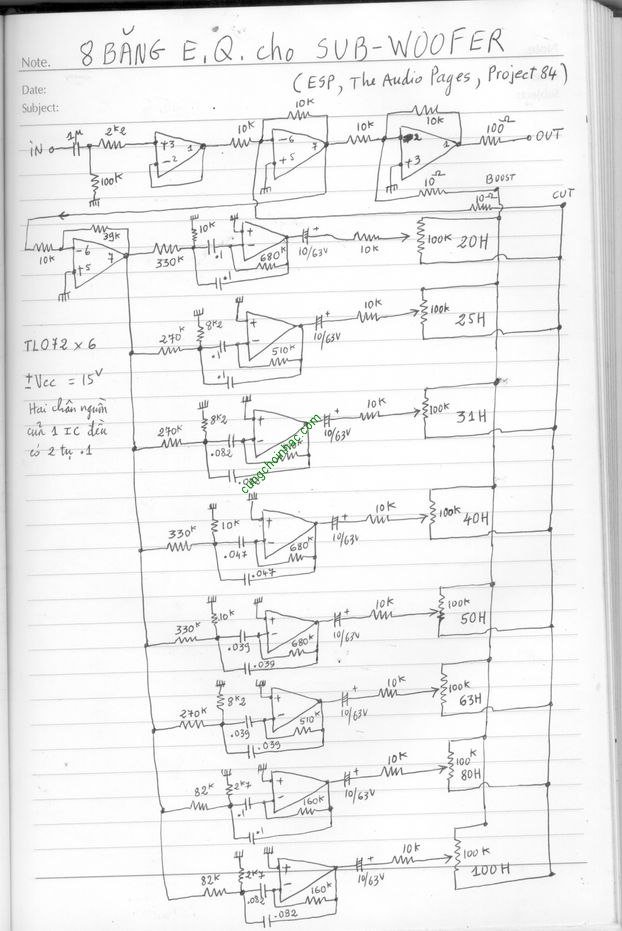 8 BĂNG E.Q. cho SUB-WOOFER
Note.
(ESP, The Audio Pages, Project 84)
Date:
Subject:
10K 10K
iN 1µ 2k2 +3 -2 1 10K -6 +5 7 10K +3 1 100Ω OUT
100k 10Ω BOOST
10Ω CUT
39k 10K
10K -6 +5 7 330K .1 + - 680k 10/63V + 10K 100k 20H
.1
TL072 x 6
8k2
270K .1 + - 510K 10/63V + 10K 100k 25H
.1
±Vcc = 15V
Hai chân nguồn
của 1 IC đều
có 2 tụ .1
8k2
270K .082 + - 10/63V + 10K 100k 31H
cungchoinhac.com
10K
330K .047 + - 680K 10/63V + 10K 100K 40H
.047
10K
330K .039 + - 680K 10/63V + 10K 100K 50H
.039
8k2
270K .039 + - 510K 10/63V + 10K 100k 63H
.039
2k7
82K .1 + - 160K 10/63V + 10K 100K 80H
.1
2k7
82K .082 + - 160K 10/63V + 10K 100K 100H
.082